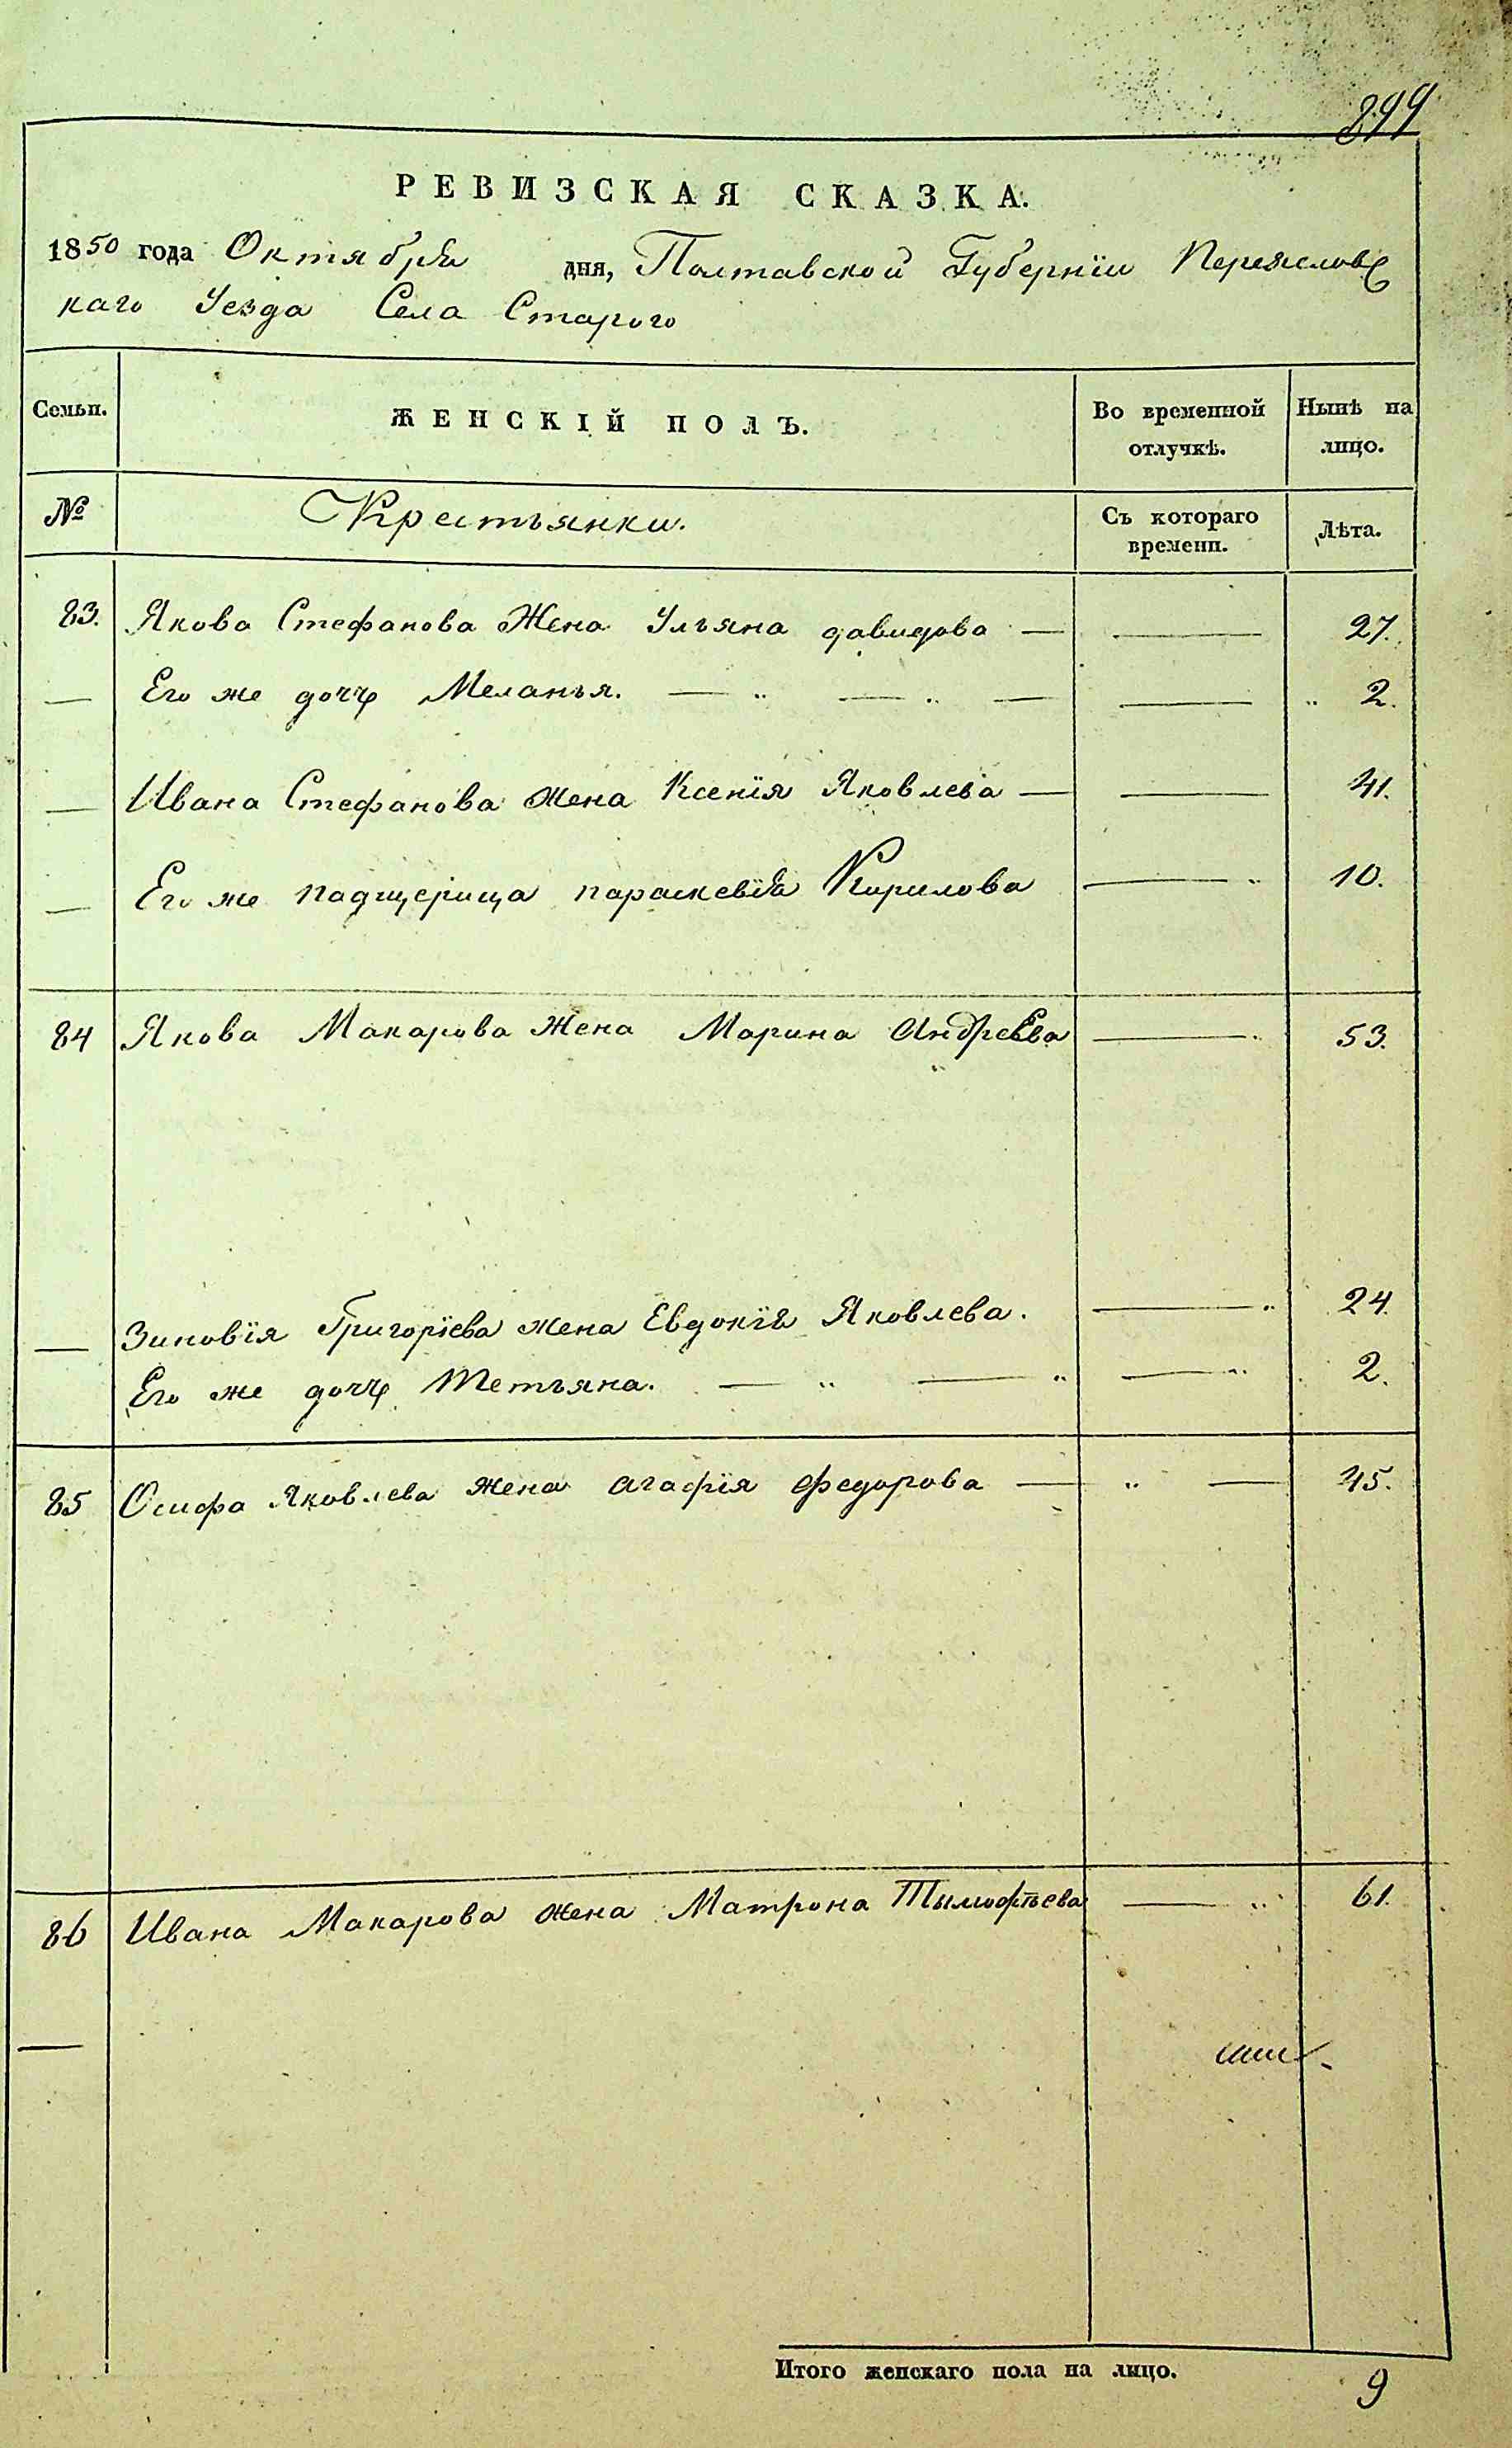 899
РЕВИЗСКАЯ СКАЗКА.
1850 года Октября дня, Полтавской Губернїи Переяславс
каго Уезда Села Старого
Семьи. ЖЕНСКІЙ ПОЛЪ. Во временной отлучкѣ. Нынѣ на лицо.
№ Крестьянки. Съ котораго времени. Лѣта.
83. Якова Стефанова Жена Ульяна давидова — — 27.
— Его же дочь Меланья. — „ — „ — — „ 2.
— Ивана Стефанова жена Ксенїя Яковлева — — 41.
— Его же падщерица параскевїя Кирилова — „ 10.
84 Якова Макарова Жена Марина Андреева — „ 53.
— Зиновїя Григорїева жена Евдокїя Яковлева. — „ 24.
Его же дочь Тетьяна. — „ — „ — „ 2.
85 Осифа Яковлева жена агафїя федорова — „ — 45.
86 Ивана Макарова жена Матрона Тымофѣева — „ 61.
—
Итого женскаго пола на лицо. 9